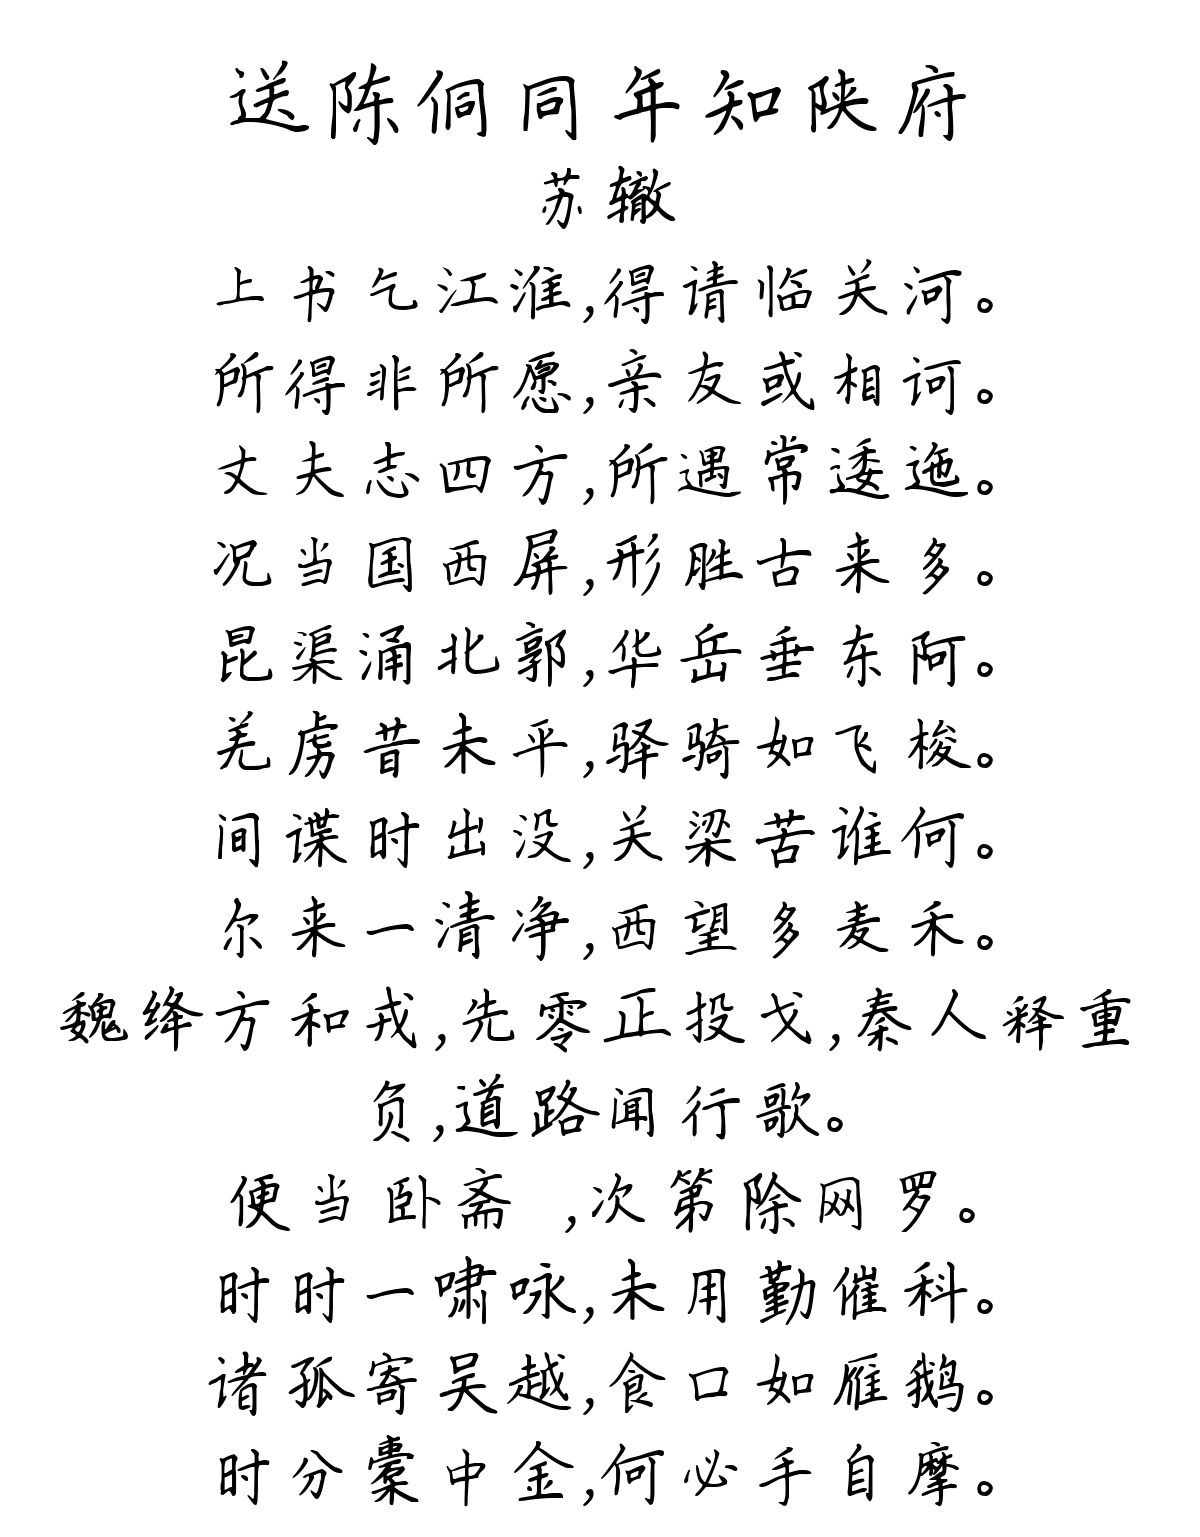 送陈侗同年知陕府
苏辙
上书乞江淮,得请临关河。
所得非所愿,亲友或相诃。
丈夫志四方,所遇常逶迤。
况当国西屏,形胜古来多。
昆渠涌北郭,华岳垂东阿。
羌虏昔未平,驿骑如飞梭。
间谍时出没,关梁苦谁何。
尔来一清净,西望多麦禾。
魏绛方和戎,先零正投戈,秦人释重
负,道路闻行歌。
便当卧斋 ,次第除网罗。
时时一啸咏,未用勤催科。
诸孤寄吴越,食口如雁鹅。
时分橐中金,何必手自摩。